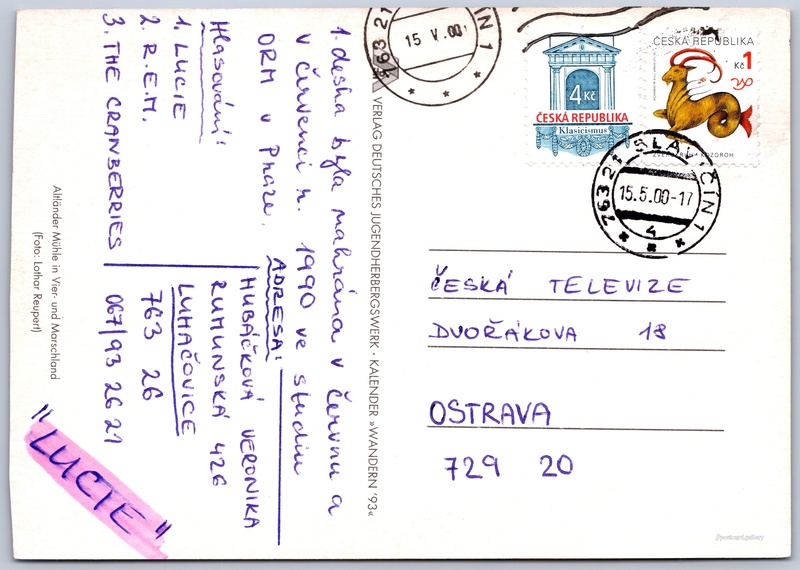 1. deska byla nahrána v červnu a
v červenci r. 1990 ve studiu
ORM v Praze.
Hlasování:
1. LUCIE
2. R.E.M.
3. THE CRANBERRIES
ADRESA:
HUBÁČKOVÁ VERONIKA
RUMUNSKÁ 426
LUHAČOVICE
763 26
067/93 26 21
"LUCIE"
Altländer Mühle in Vier- und Marschland
(Foto: Lothar Reupert)
VERLAG DEUTSCHES JUGENDHERBERGSWERK · KALENDER »WANDERN '93«
763 21 ČÍN 1
15 V.00
4 Kč
ČESKÁ REPUBLIKA
Klasicismus
ČESKÁ REPUBLIKA
Kč 1
KOZOROH
763 21 SLAVIČÍN 1
15.5.00-17
4
ČESKÁ TELEVIZE
DVOŘÁKOVA 18
OSTRAVA
729 20
//postcard.gallery